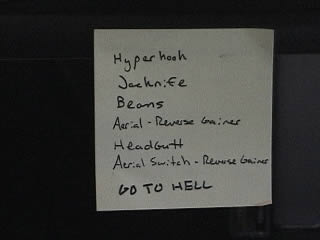 Hyperhook
Jacknife
Beans
Aerial - Reverse Gainer
Headbutt
Aerial Switch - Reverse Gainer
GO TO HELL